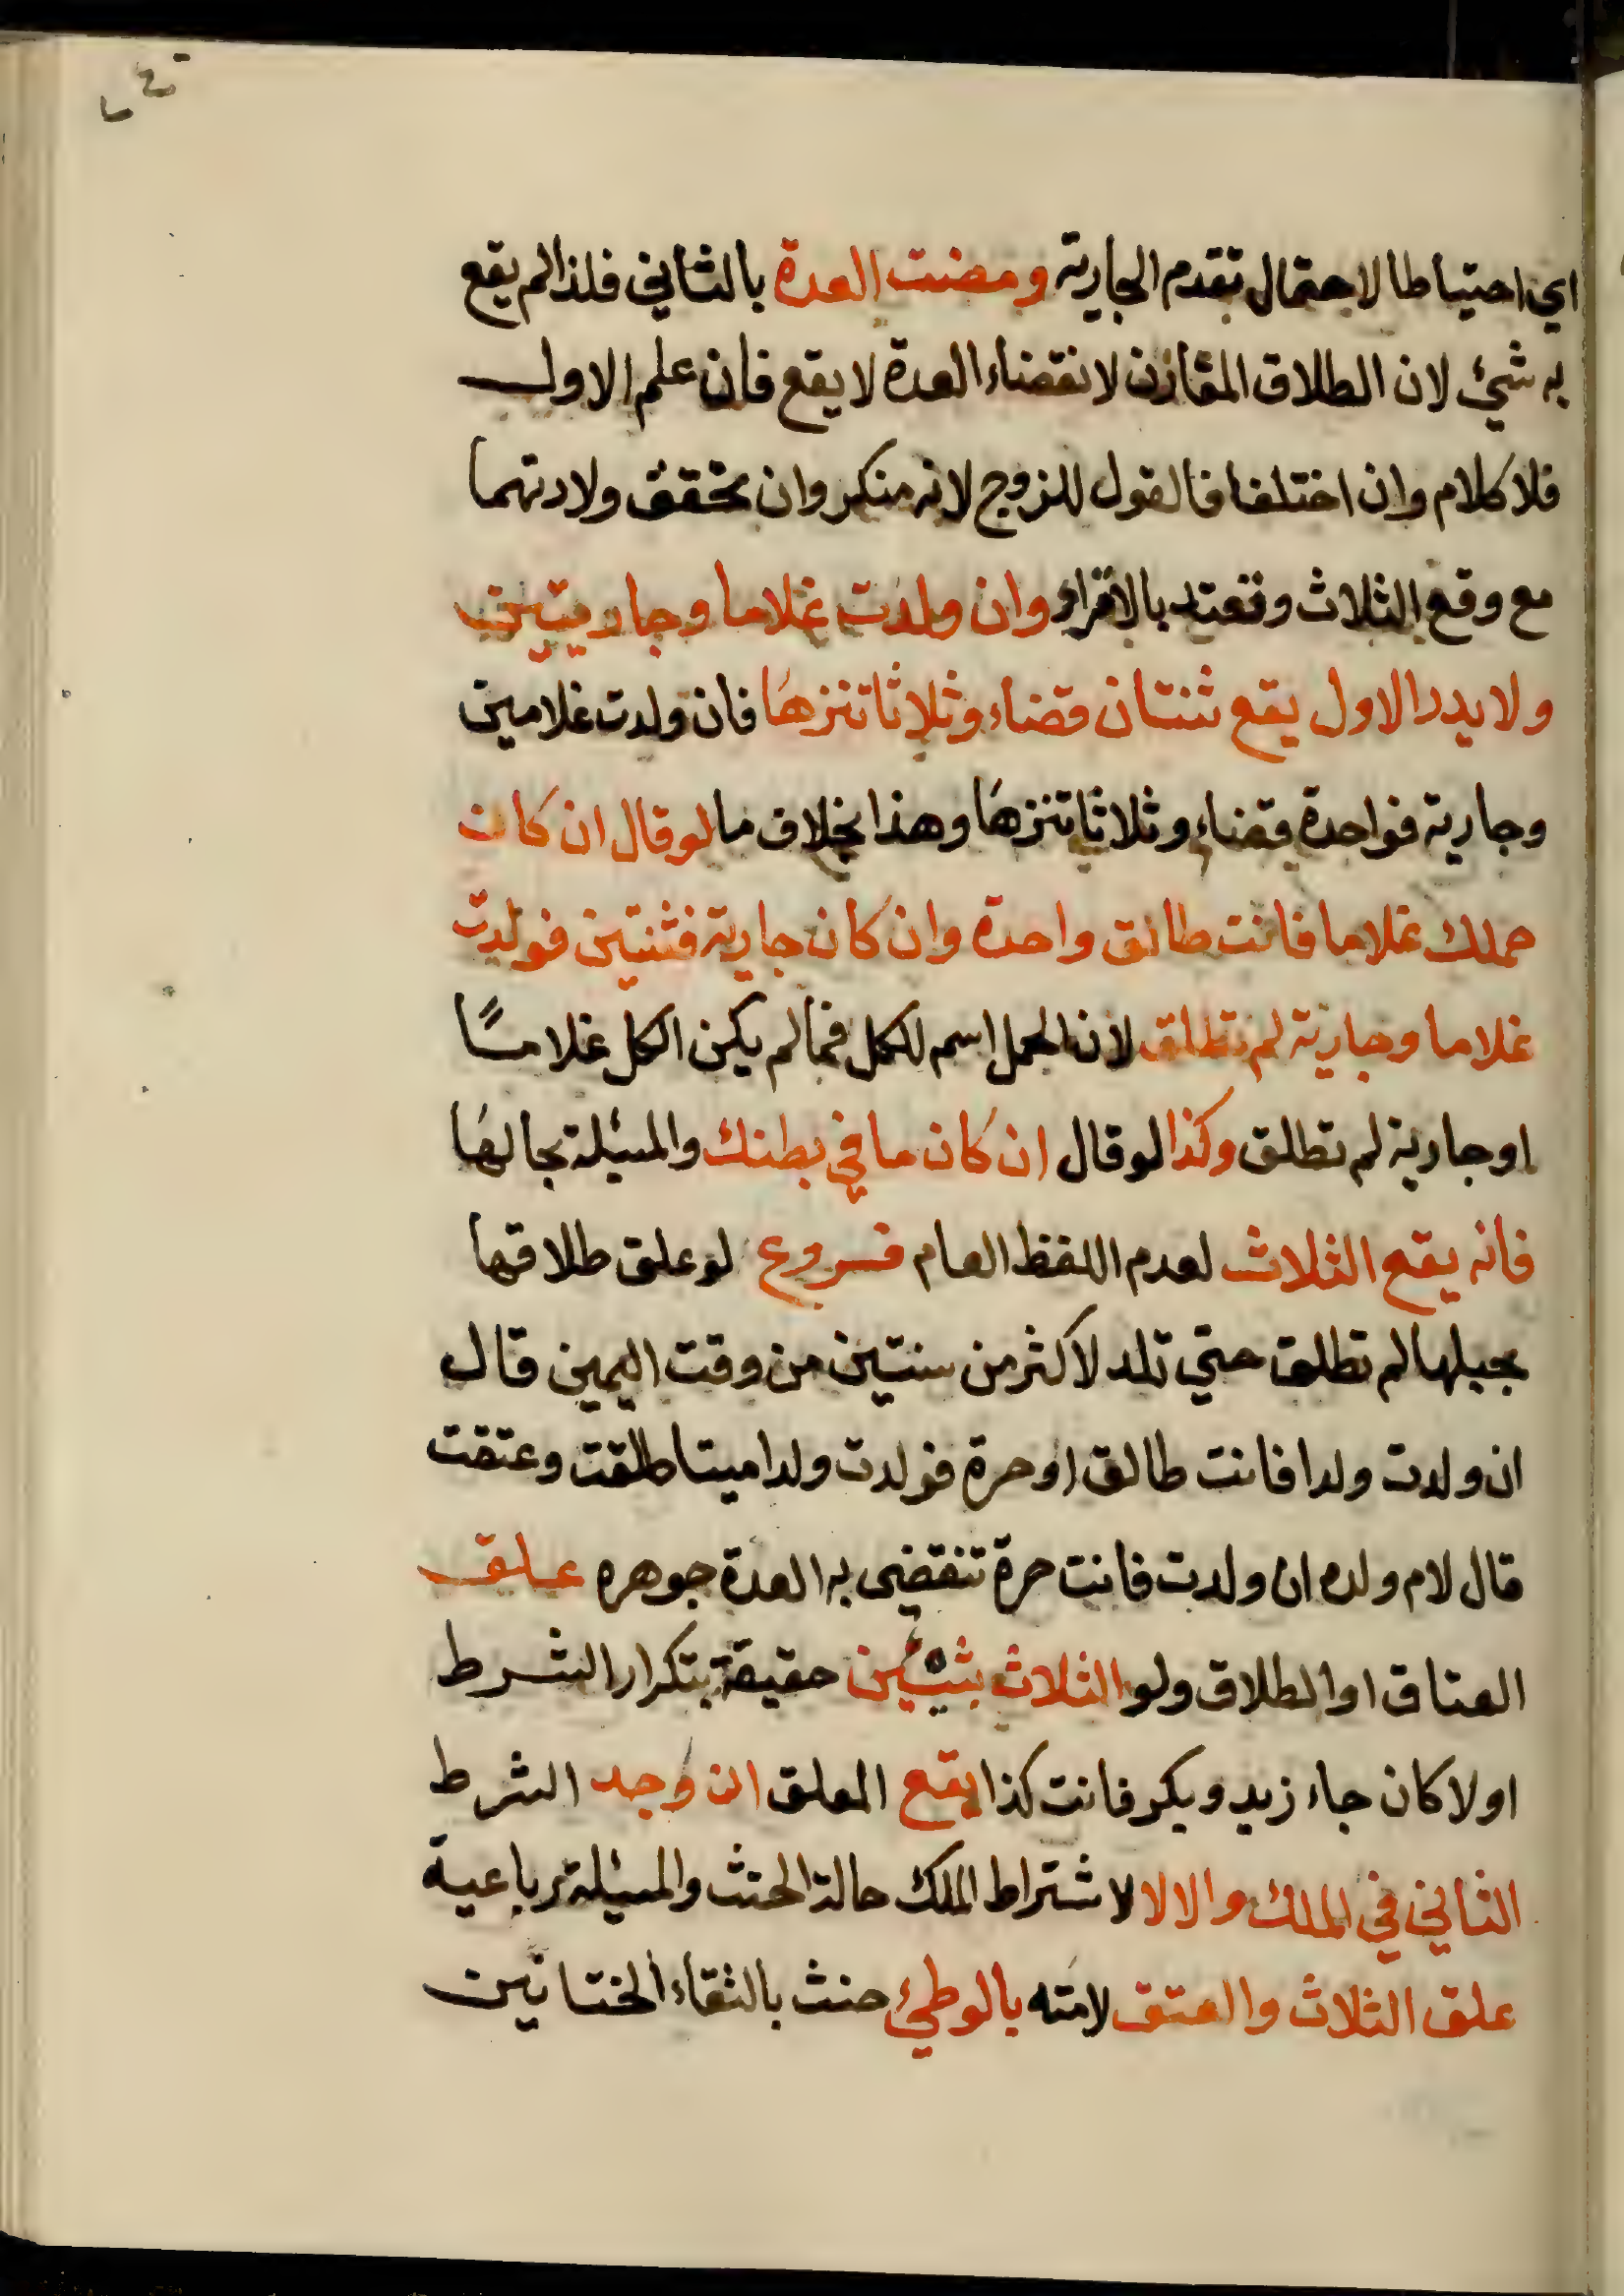 اي احتياطا لاحتمال تقدم الجارية ومضت العدة بالثاني فلذا لم يقع
به شئ لان الطلاق المقارن لانقضاء العدة لا يقع فان علم الاول
فلا كلام وان اختلفا فالقول للزوج لانه منكر وان تحقق ولادتهما
مع وقع الثلاث وتعتد بالاقراء وان ولدت غلاما وجاريتين
ولا يدرا الاول يقع ثنتان قضاء وثلاثا تنزها فان ولدت غلامين
وجارية فواحدة قضاء وثلاثا تنزها وهذا بخلاف ما لو قال ان كان
حملك غلاما فانت طالق واحدة وان كان جارية فثنتين فولدت
غلاما وجارية لم تطلق لان الحمل اسم للكل فما لم يكن الكل غلاما
او جارية لم تطلق وكذا لو قال ان كان ما في بطنك والمسئلة بحالها
فانه يقع الثلاث لعدم اللفظ العام فروع لو علق طلاقها
بحبلها لم تطلق حتي تلد لاكثر من سنتين من وقت اليمين قال
ان ولدت ولدا فانت طالق او حرة فولدت ولدا ميتا طلقت وعتقت
قال لام ولده ان ولدت فانت حرة تنقضي به العدة جوهره علق
العتاق او الطلاق ولو الثلاث بشيئين حقيقة بتكرار الشرط
او لا كان جاء زيد وبكر فانت كذا يقع المعلق ان وجد الشرط
الثاني في الملك والا لا لاشتراط الملك حالة الحنث والمسئلة رباعية
علق الثلاث والعتق لامته بالوطئ حنث بالتقاء الختانين